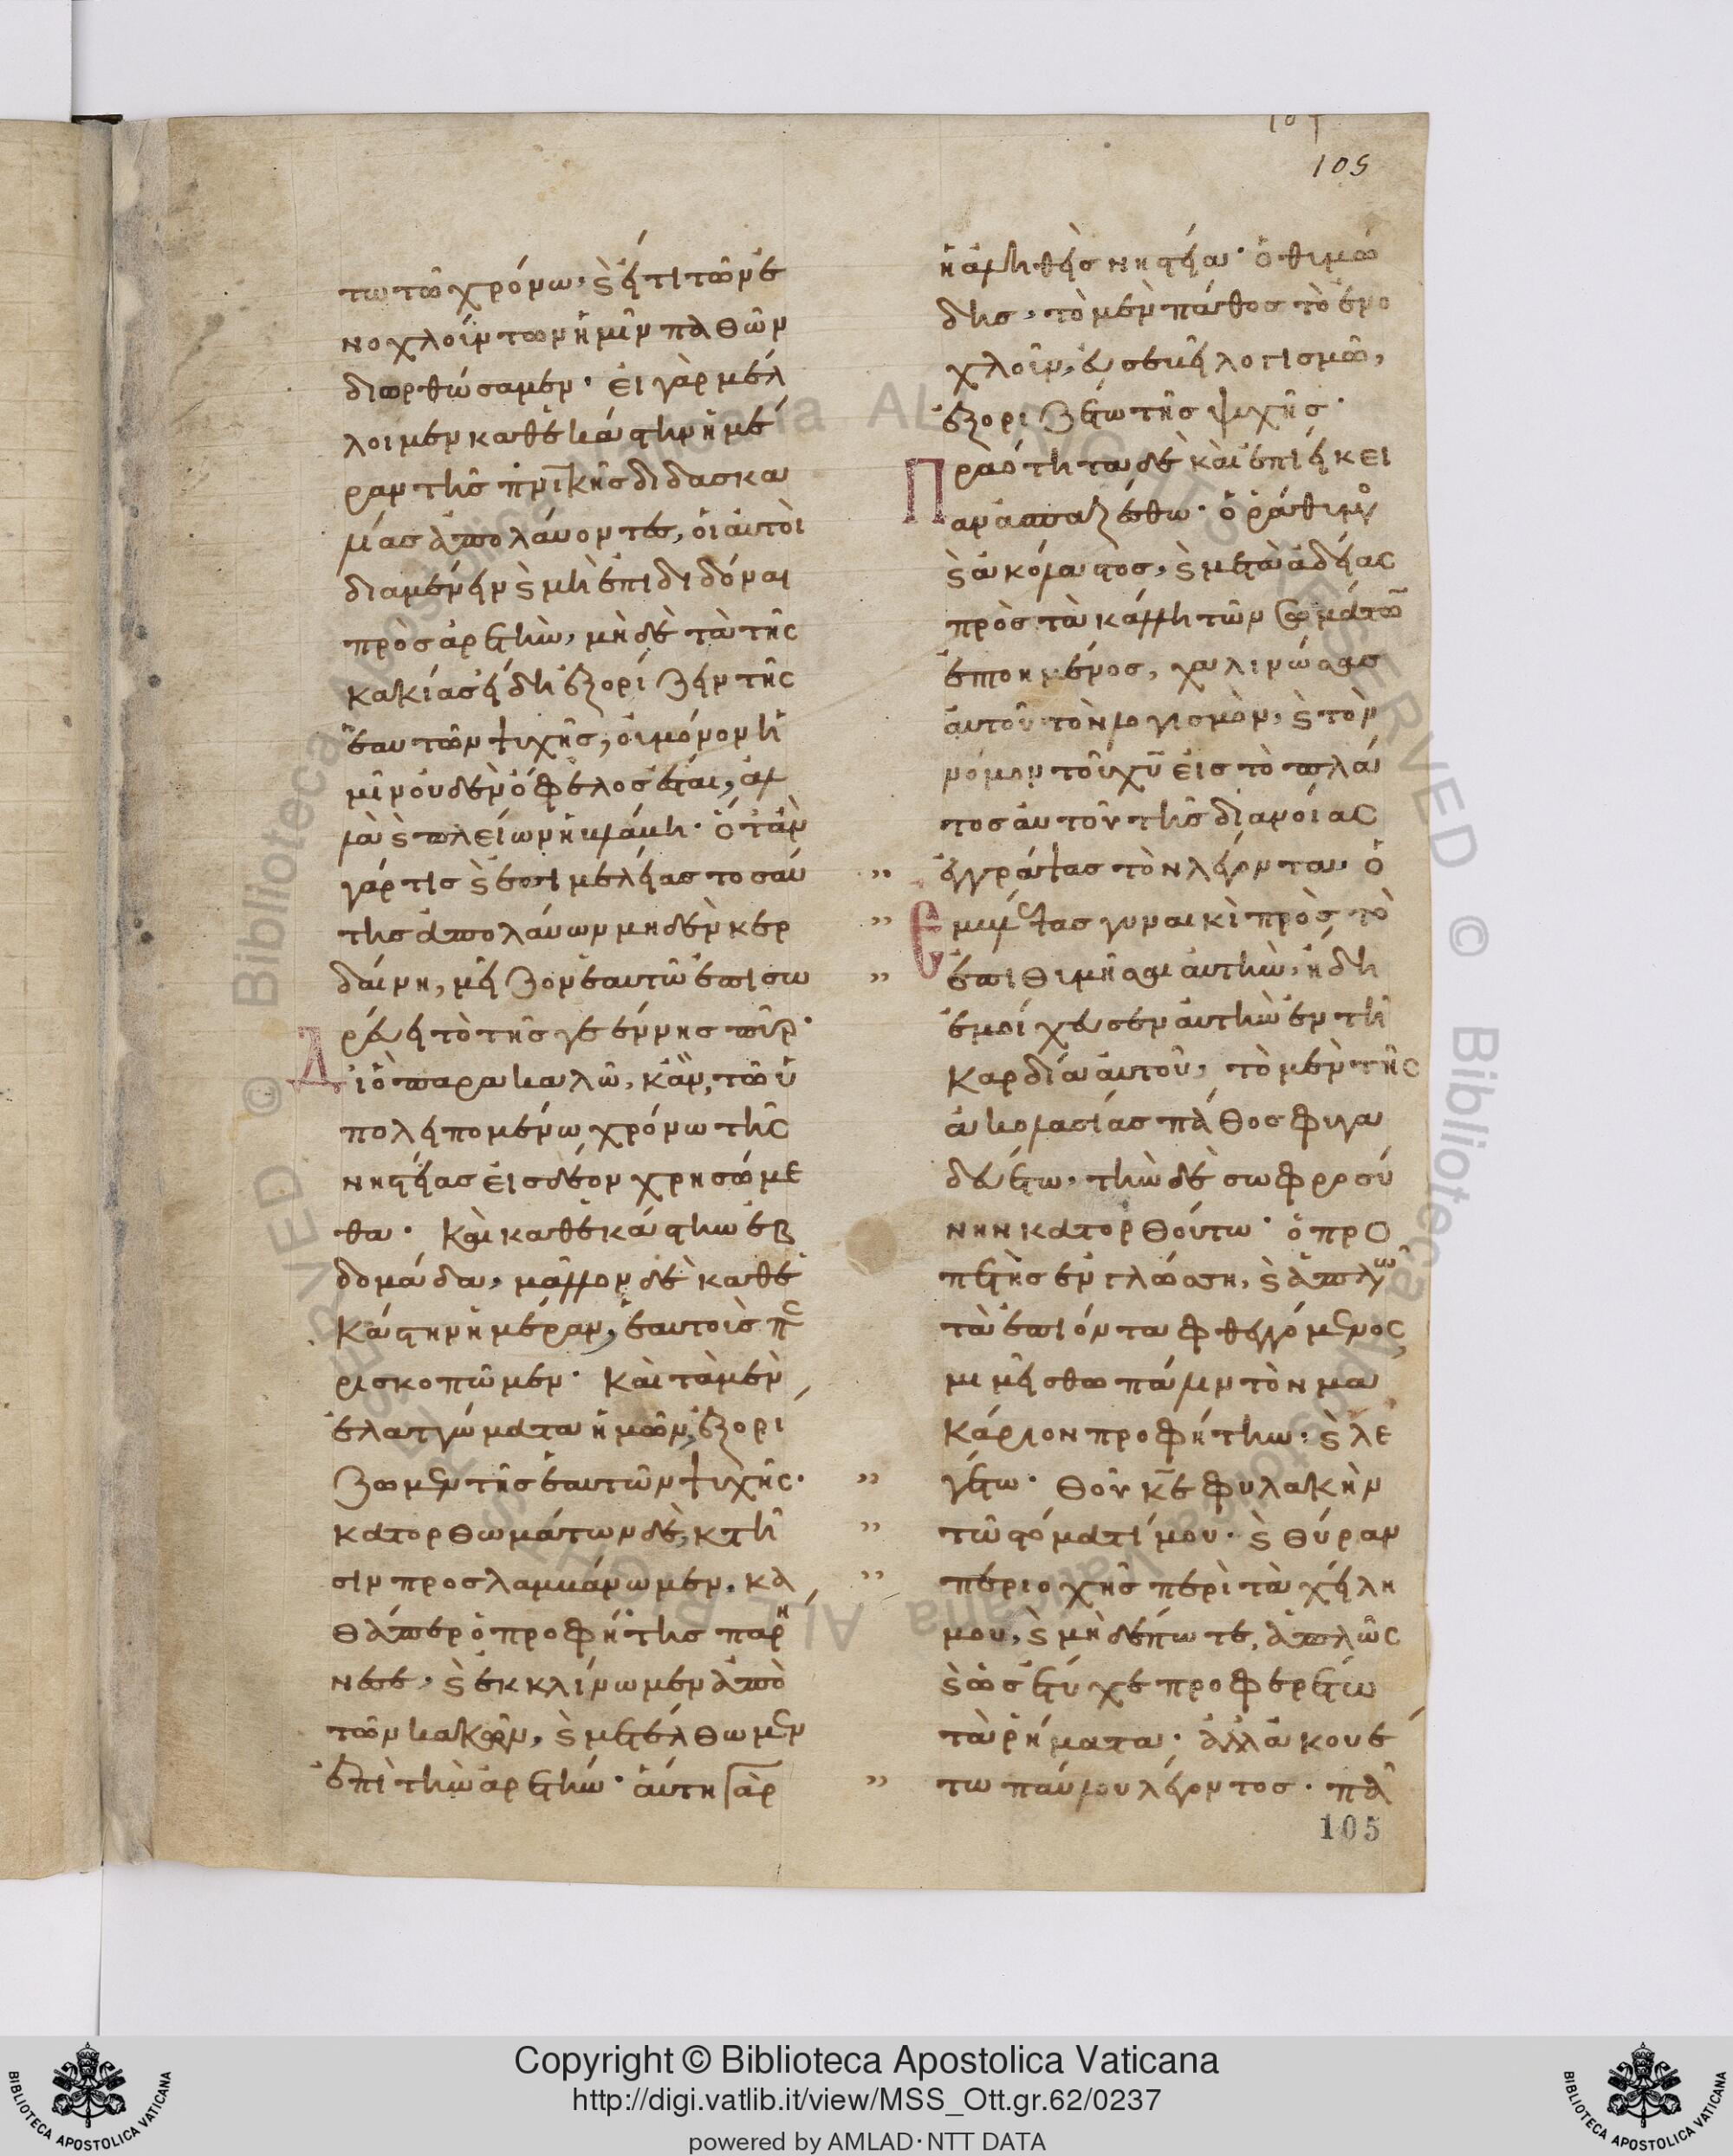 105
τω τῶ χρόνω· ϗ̀ εἴ τι τῶν ἐ
νοχλούντων ἡμῖν παθῶν
διωρθώσαμεν· εἰ γὰρ μέλ
λοιμεν καθἑκάστην ἡμέ
ραν τῆς πν̅ικῆς διδασκα
λίας ἀπολάυοντες, οἱ ἀυτοὶ
διαμένειν ϗ̀ μὴ ἐπιδιδόναι
πρὸς ἀρετὴν, μὴ δὲ τὰ τῆς
κακίας εἴδη ἐξορίζειν τῆς
ἑαυτῶν ψυχῆς, οὐ μόνον ἡ
μῖν οὐδὲν ὄφελος ἔσται, ἀλ
λὰ ϗ̀ πλείων ἡ βλάβη· ὅταν
γάρ τις ϗ̀ ἐπιμελείας τοσαύ
της ἀπολάυων μηδὲν κερ
δάινη, μεῖζον ἑαυτῶ ἐπισω
ρεύει τὸ τῆς γεέννης πῦρ·
Διὸ παρακαλῶ, κἂν τῶ ὑ
πολειπομένω χρόνω τῆς
νηστείας εἰς δέον χρησώμε
θα· Καὶ καθἑκάστην ἑβ
δομάδα, μᾶλλον δὲ καθἑ
κάστην ἡμέραν, ἑαυτοὺς πε
ρισκοπῶμεν· Καὶ τὰ μὲν
ἐλαττώματα ἡμῶν, ἐξορί
ζωμεν τῆς ἑαυτῶν ψυχῆς·
κατορθωμάτων δὲ, κτῆ
σιν προσλαμβάνωμεν, κα
θάπερ ὁ προφήτης παρή
νεσε· ϗ̀ ἐκκλίνωμεν ἀπὸ
τῶν κακῶν, ϗ̀ μετέλθωμεν
ἐπὶ τὴν ἀρετήν· ἄυτη γὰρ
ἡ ἀληθὴς νηστεία· ὁ θυμώ
δης, τὸ μὲν πάθος τὸ ἐνο
χλοῦν, εὐσεβεῖ λογισμῶ,
ἐξοριζέτω τῆς ψυχῆς·
Πραότητα δὲ καὶ ἐπιείκει
αν ἀσπαζέσθω· ὁ ράθυμος
ϗ̀ ἀκόλαστος, ϗ̀ μετὰ ἀδείας
πρὸς τὰ κάλλη τῶν σωμάτων
ἐπτοημένος, χαλινώσας
ἀυτοῦ τὸν λογισμὸν, ϗ̀ τὸν
νόμον τοῦ χυ̅ εἰς τὸ πλά
τος ἀυτοῦ τῆς διανοίας
ἐγγράψας τὸν λέγοντα, ὁ
Ἐμβλέψας γυναικὶ πρὸς τὸ
ἐπιθυμῆσαι ἀυτὴν, ἤδη
ἐμοίχευσεν ἀυτὴν ἐν τῆ
καρδία ἀυτοῦ, τὸ μὲν τῆς
ἀκολασίας πάθος φυγα
δευέτω, τὴν δὲ σωφροσύ
νην κατορθούτω· ὁ προ
πετὴς ἐν γλώσση, ϗ̀ ἁπλῶς
τὰ ἐπιόντα φθεγγόμενος,
μιμείσθω πάλιν τὸν μα
κάριον προφήτην, ϗ̀ λε
γέτω· Θοῦ κ̅ε φυλακὴν
τῶ στόματί μου· ϗ̀ θύραν
περιοχῆς περὶ τὰ χείλη
μου, ϗ̀ μὴ δέπωτε, ἁπλῶς
ϗ̀ ὡς ἔτυχε προφερέτω
τὰ ρήματα· ἀλλἀκουέ
τω παύλου λέγοντος· πᾶ
105
Copyright © Biblioteca Apostolica Vaticana
http://digi.vatlib.it/view/MSS_Ott.gr.62/0237
powered by AMLAD·NTT DATA